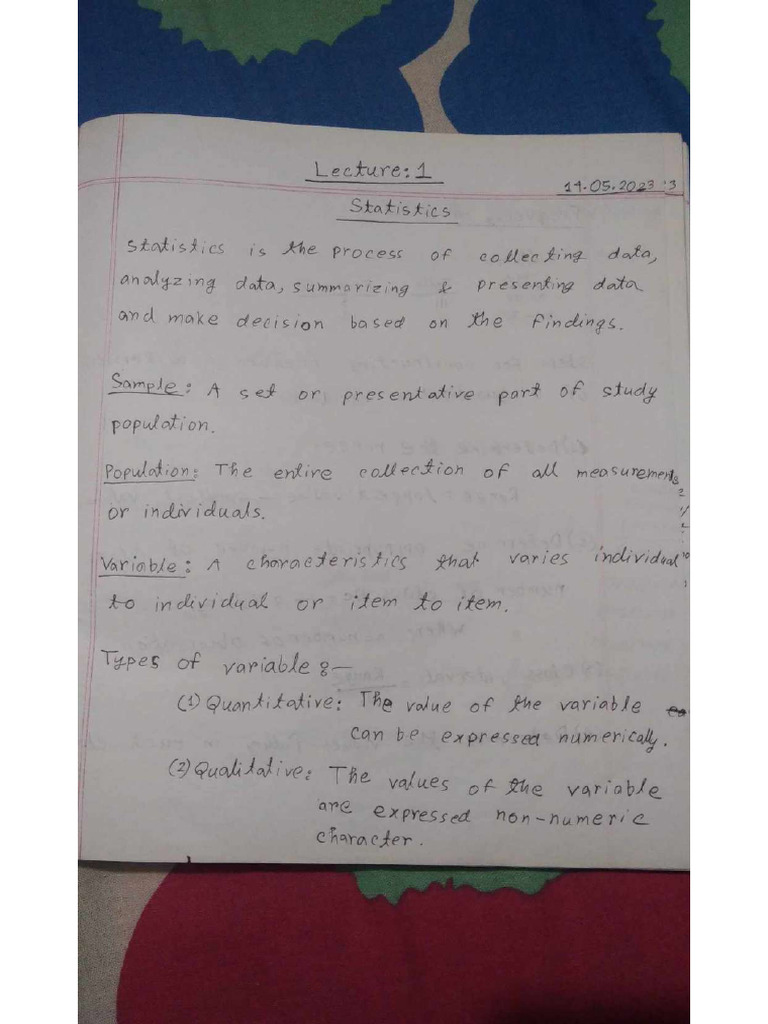 Lecture: 1
14.05.2023
Statistics
Statistics is the process of collecting data,
analyzing data, summarizing & presenting data
and make decision based on the findings.
Sample: A set or presentative part of study
population.
Population: The entire collection of all measurements
or individuals.
Variable: A characteristics that varies individual
to individual or item to item.
Types of variable :-
(1) Quantitative: The value of the variable
can be expressed numerically.
(2) Qualitative: The values of the variable
are expressed non-numeric
character.